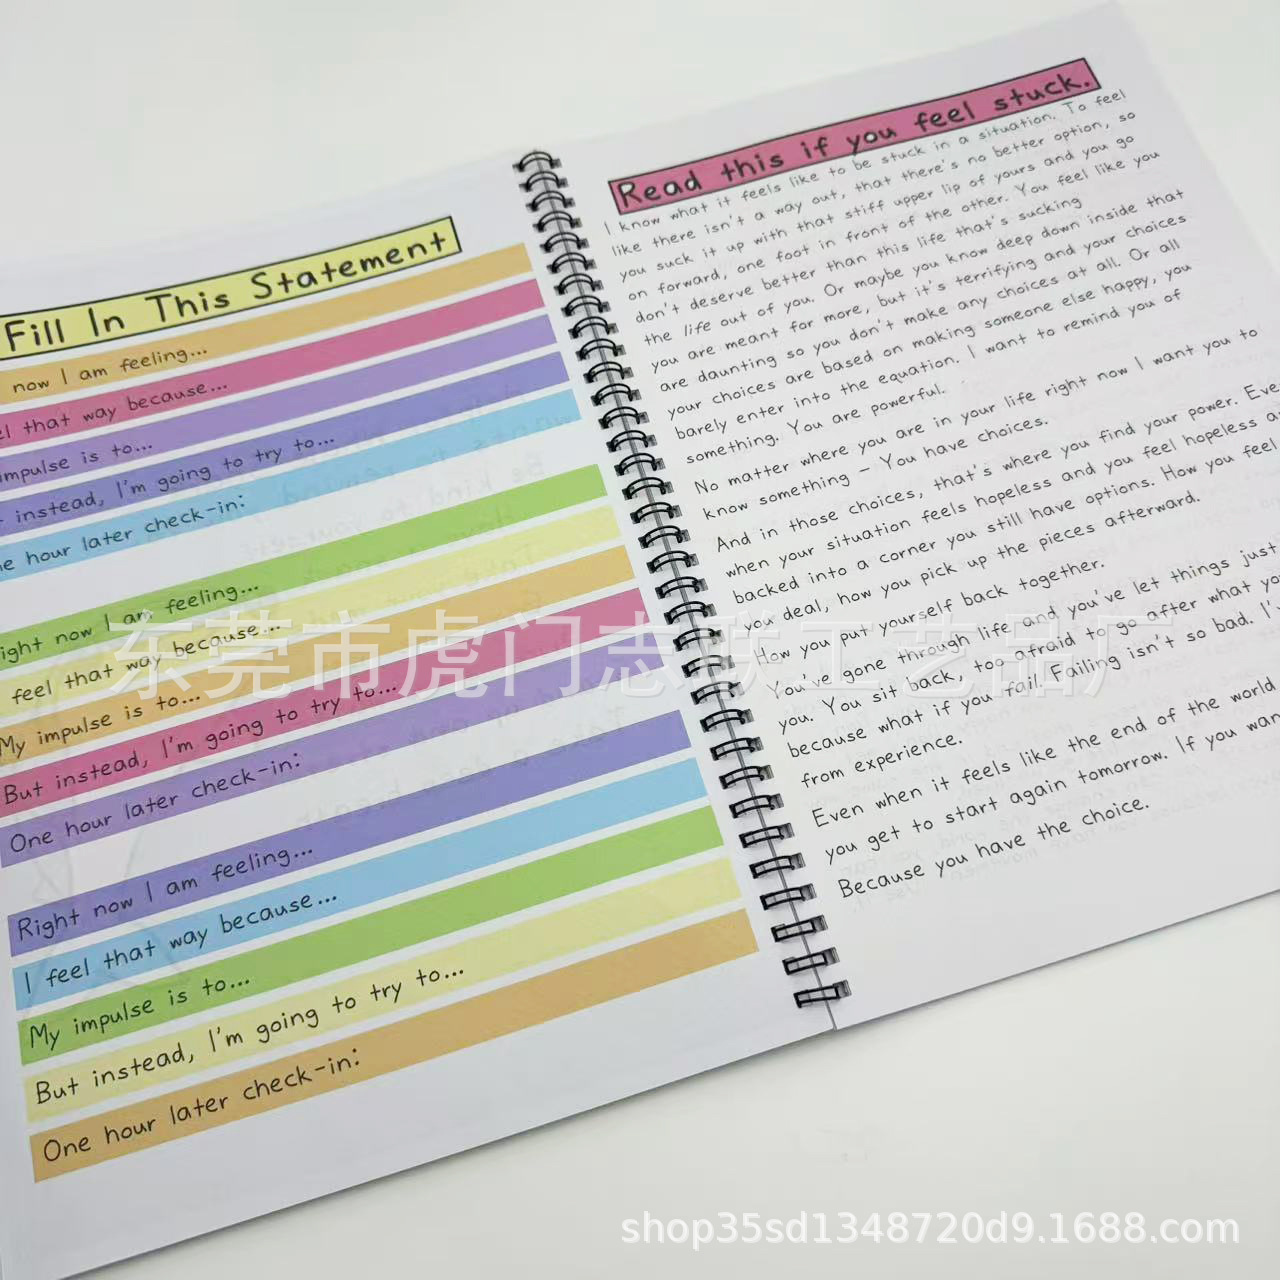 Fill In This Statement
now I am feeling...
that way because...
impulse is to...
instead, I'm going to try to...
hour later check-in:
now I am feeling...
feel that way because...
My impulse is to...
But instead, I'm going to try to...
One hour later check-in:
Right now I am feeling...
I feel that way because...
My impulse is to...
But instead, I'm going to try to...
One hour later check-in:
Read this if you feel stuck.
I know what it feels like to be stuck in a situation. To feel
like there isn't a way out, that there's no better option, so
you suck it up with that stiff upper lip of yours and you go
on forward, one foot in front of the other. You feel like you
don't deserve better than this life that's sucking
the life out of you. Or maybe you know deep down inside that
you are meant for more, but it's terrifying and your choices
are daunting so you don't make any choices at all. Or all
your choices are based on making someone else happy, you
barely enter into the equation. I want to remind you of
something. You are powerful.
No matter where you are in your life right now I want you to
know something - You have choices.
And in those choices, that's where you find your power. Even
when your situation feels hopeless and you feel hopeless
backed into a corner you still have options. How you feel
you deal, how you pick up the pieces afterward.
How you put yourself back together.
You've gone through life and you've let things just
you. You sit back, too afraid to go after what you
because what if you fail. Failing isn't so bad.
from experience.
Even when it feels like the end of the world
you get to start again tomorrow. If you
Because you have the choice.
东莞市虎门志联工艺品厂
shop35sd1348720d9.1688.com